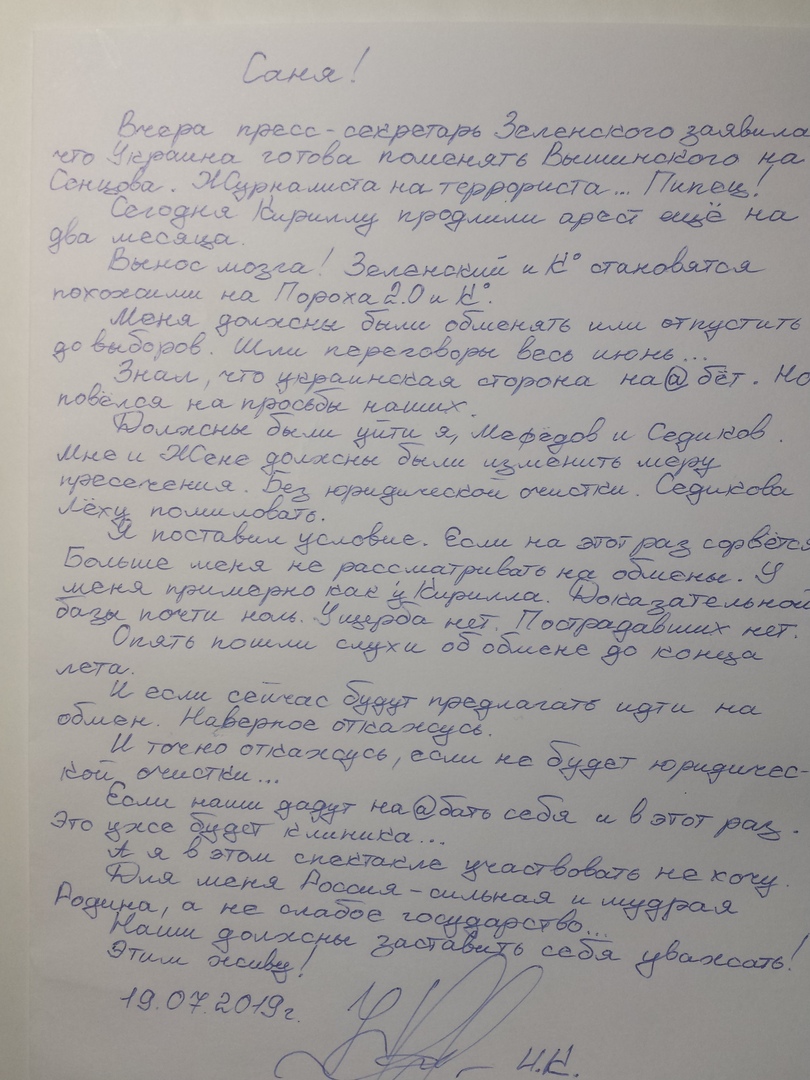 Саня!
Вчера пресс-секретарь Зеленского заявила
что Украина готова поменять Вышинского на
Сенцова. Журналиста на террориста... Пипец!
Сегодня Кириллу продлили арест ещё на
два месяца.
Вынос мозга! Зеленский и К° становятся
похожими на Пороха 2.0 и К°.
Меня должны были обменять или отпустить
до выборов. Шли переговоры весь июнь...
Знал, что украинская сторона на@бёт. Но
повёлся на просьбы наших.
Должны были уйти я, Мефёдов и Седиков.
Мне и Жене должны были изменить меру
пресечения. Без юридической очистки. Седикова
Лёху помиловать.
Я поставил условие. Если на этот раз сорвётся
Больше меня не рассматривать на обмены. У
меня примерно как у Кирилла. Доказательной
базы почти ноль. Ущерба нет. Пострадавших нет.
Опять пошли слухи об обмене до конца
лета.
И если сейчас будут предлагать идти на
обмен. Наверное откажусь.
И точно откажусь, если не будет юридичес-
кой очистки...
Если наши дадут на@бать себя и в этот раз.
Это уже будет клиника...
А я в этом спектакле участвовать не хочу.
Для меня Россия - сильная и мудрая
Родина, а не слабое государство...
Наши должны заставить себя уважать!
Этим живу!
19.07.2019г.